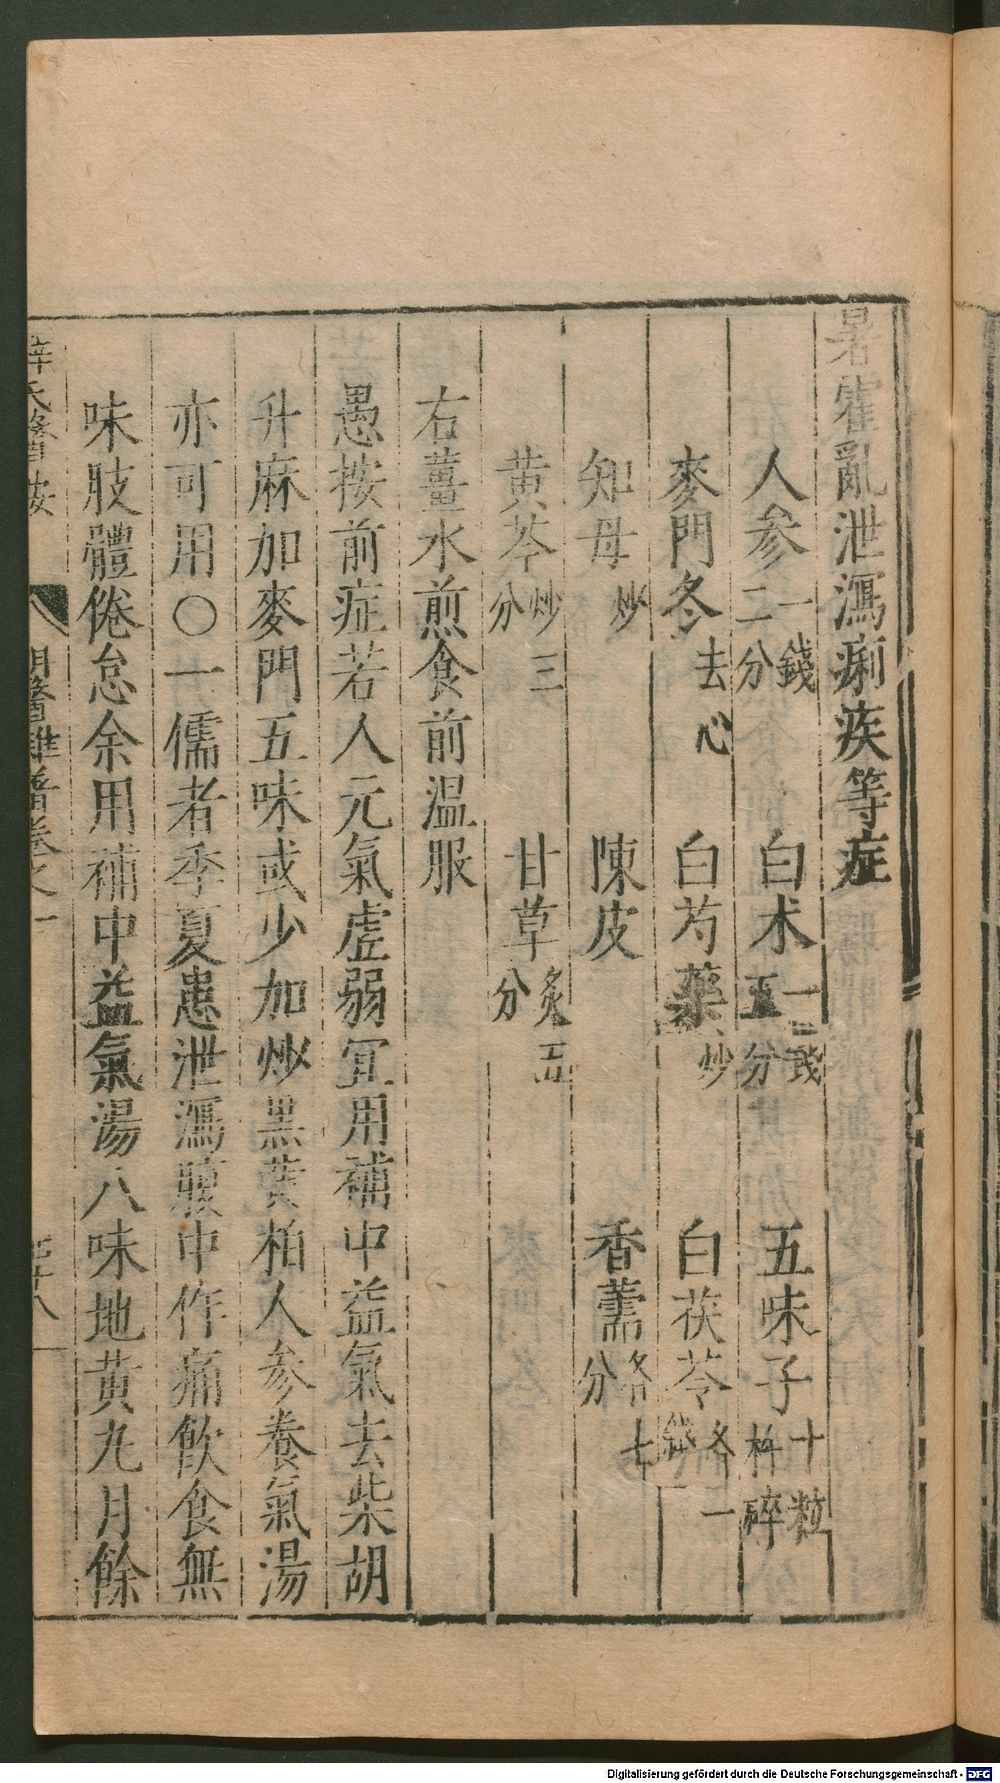 暑霍亂泄瀉痢疾等症
人參一錢二分　白术一錢五分　五味子十粒杵碎
麥門冬去心　白芍藥炒　白茯苓各一錢
知母炒　陳皮　香薷各七分
黄芩炒三分　甘草炙五分
右薑水煎食前温服
愚按前症若人元氣虚弱宜用補中益氣去柴胡
升麻加麥門五味或少加炒黑黄柏人參養氣湯
亦可用○一儒者季夏患泄瀉腹中作痛飲食無
味肢體倦怠余用補中益氣湯八味地黄丸月餘
薛氏醫按　明醫雜著卷之一
Digitalisierung gefördert durch die Deutsche Forschungsgemeinschaft - DFG